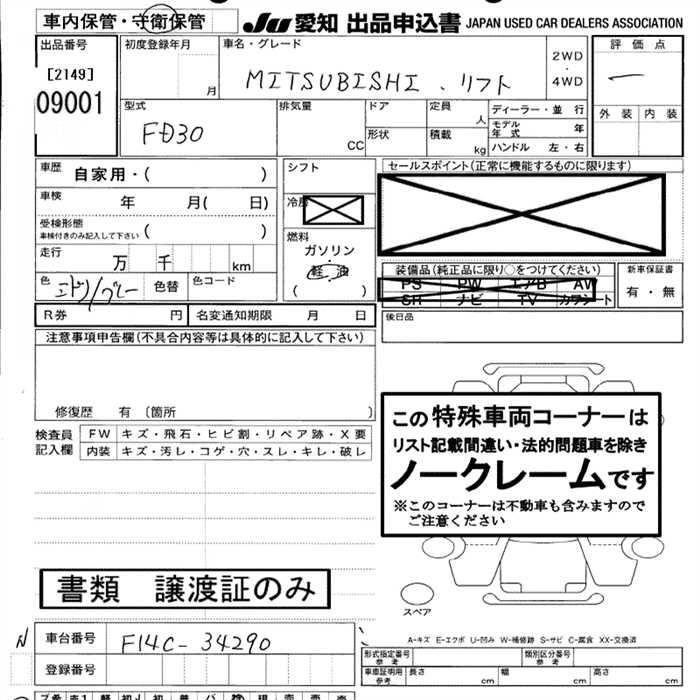 車内保管・守衛保管
JU 愛知 出品申込書 JAPAN USED CAR DEALERS ASSOCIATION
出品番号
[2149]
09001
初度登録年月
月
車名・グレード
MITSUBISHI . リフト
2WD
・
4WD
評価点
一
外装 内装
型式
FD30
排気量
CC
ドア
形状
定員
人
積載
kg
ディーラー・並行
モデル年式 年
ハンドル 左・右
車歴
自家用・( )
車検
年 月( 日)
受検形態
車検付きのみ記入して下さい ( )
走行
万 千 km
色
ミドリ/グレー
色替
色コード
シフト
冷房
燃料
ガソリン
軽油
( )
セールスポイント(正常に機能するものに限ります)
装備品(純正品に限り○をつけてください)
PS PW エアB AW
SR ナビ TV カワシート
新車保証書
有・無
R券 円
名変通知期限 月 日
後日品
注意事項申告欄(不具合内容等は具体的に記入して下さい)
修復歴 有 〔箇所 〕
検査員
記入欄
FW キズ・飛石・ヒビ割・リペア跡・X要
内装 キズ・汚レ・コゲ・穴・スレ・キレ・破レ
この特殊車両コーナーは
リスト記載間違い・法的問題車を除き
ノークレームです
※このコーナーは不動車も含みますので
ご注意ください
書類 譲渡証のみ
スペア
A-キズ E-エクボ U-凹み W-補修跡 S-サビ C-腐食 XX-交換済
N
車台番号
F14C-34290
登録番号
形式指定番号
参考
類別区分番号
参考
車庫証明用
参考
長さ cm
幅 cm
高さ cm